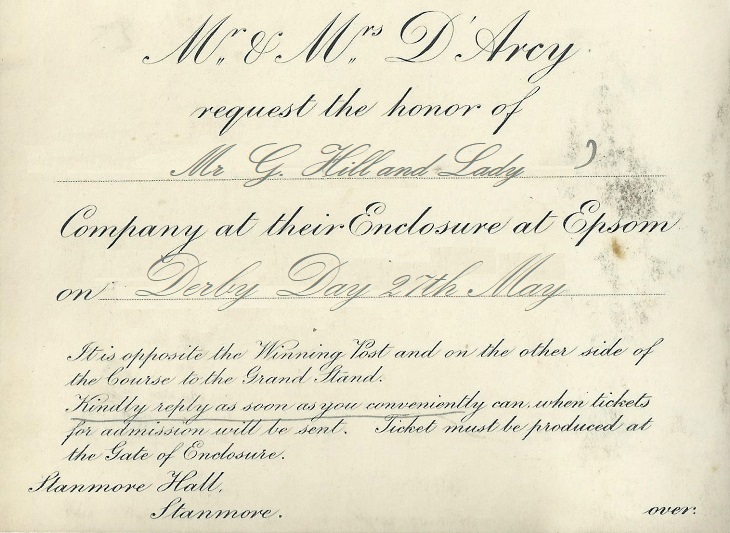 Mr. & Mrs. D'Arcy
request the honor of
Mr G. Hill and Lady
Company at their Enclosure at Epsom
on Derby Day 27th May
It is opposite the Winning Post and on the other side of
the Course to the Grand Stand.
Kindly reply as soon as you conveniently can, when tickets
for admission will be sent. Ticket must be produced at
the Gate of Enclosure.
Stanmore Hall,
Stanmore.
over.